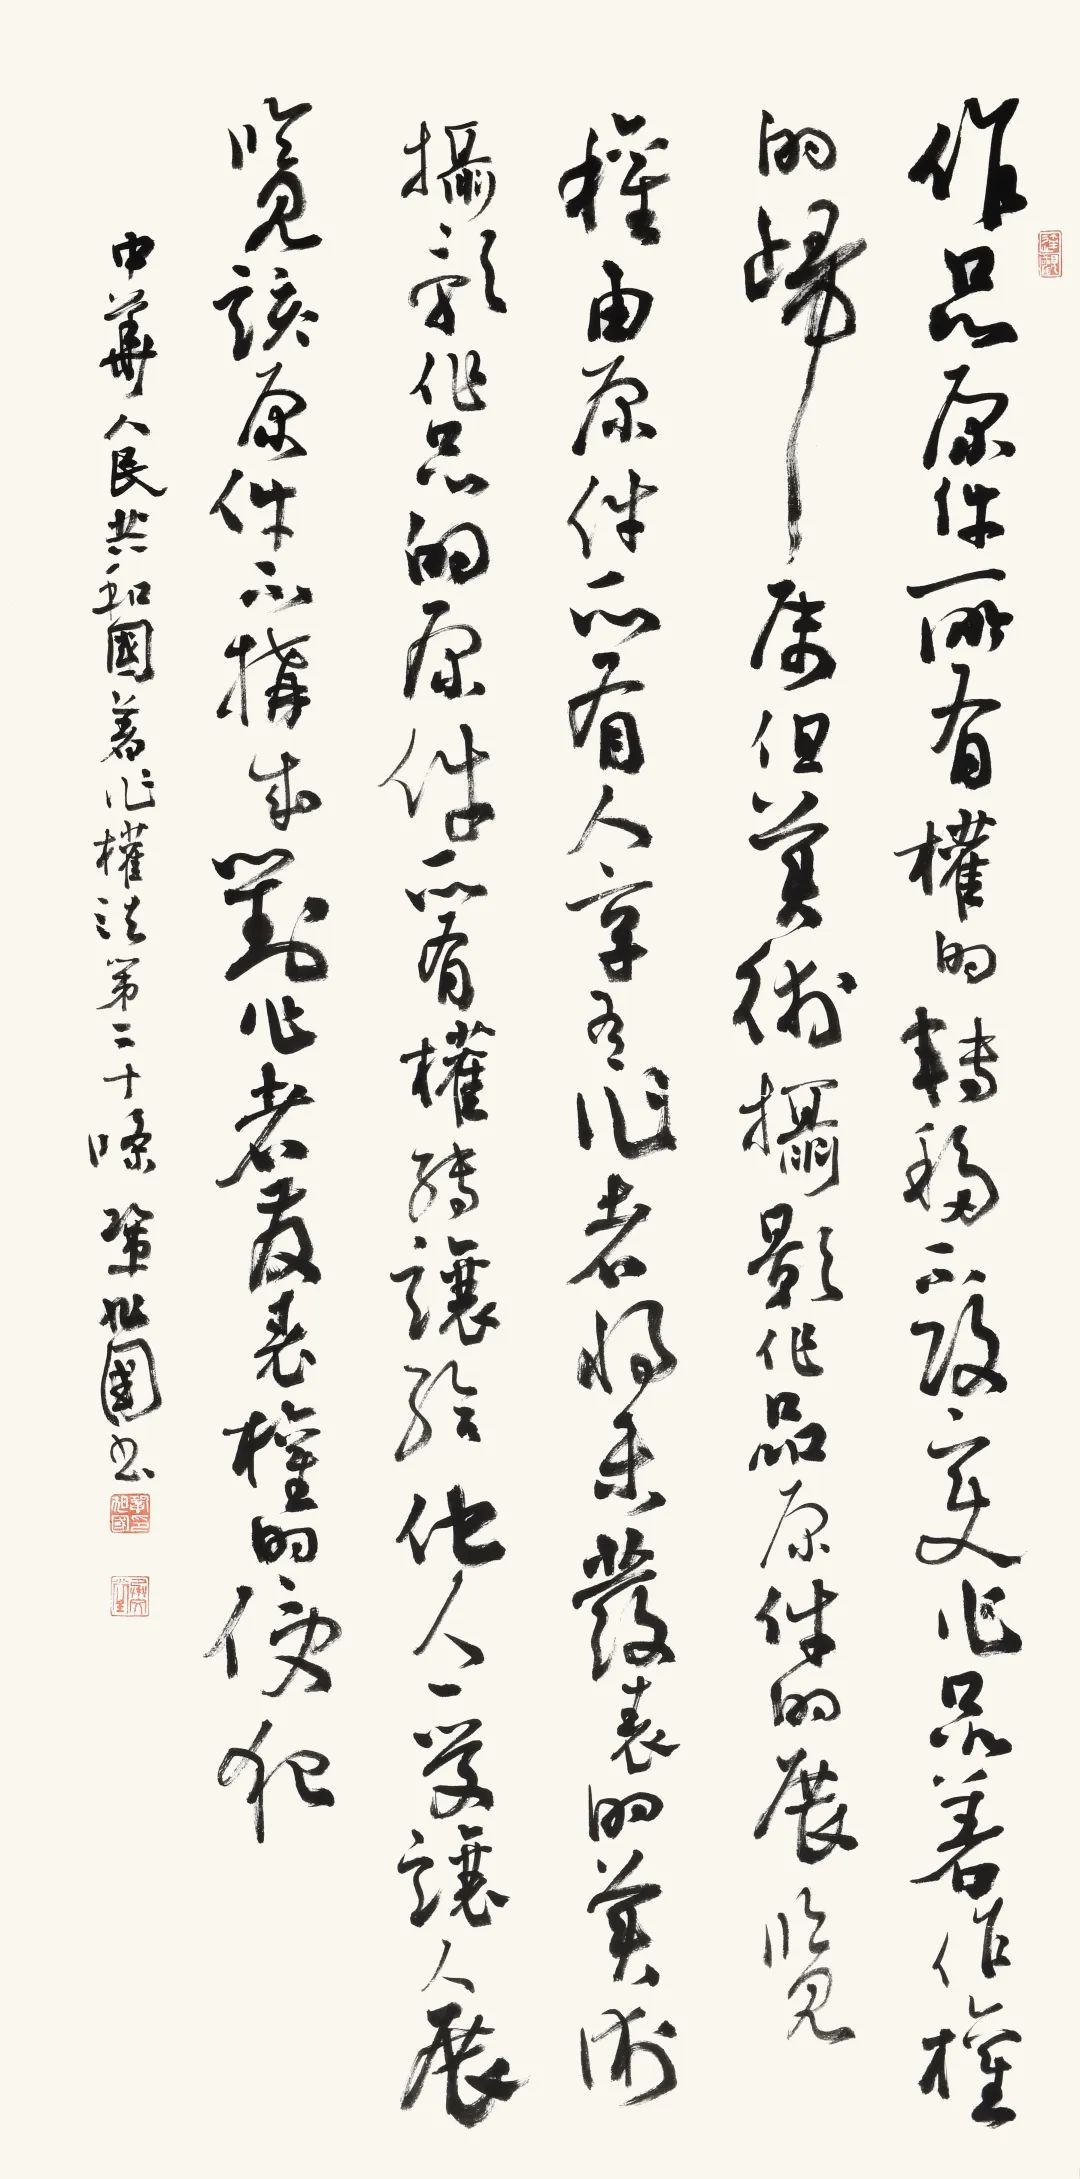 作品原件所有權的轉移不改變作品著作權
的歸属但美術攝影作品原件的展覽
權由原件所有人享有作者將未發表的美術
攝影作品的原件所有權轉讓給他人受讓人展
覽該原件不構成對作者發表權的侵犯
中華人民共和國著作權法第二十條 鞏旭國书